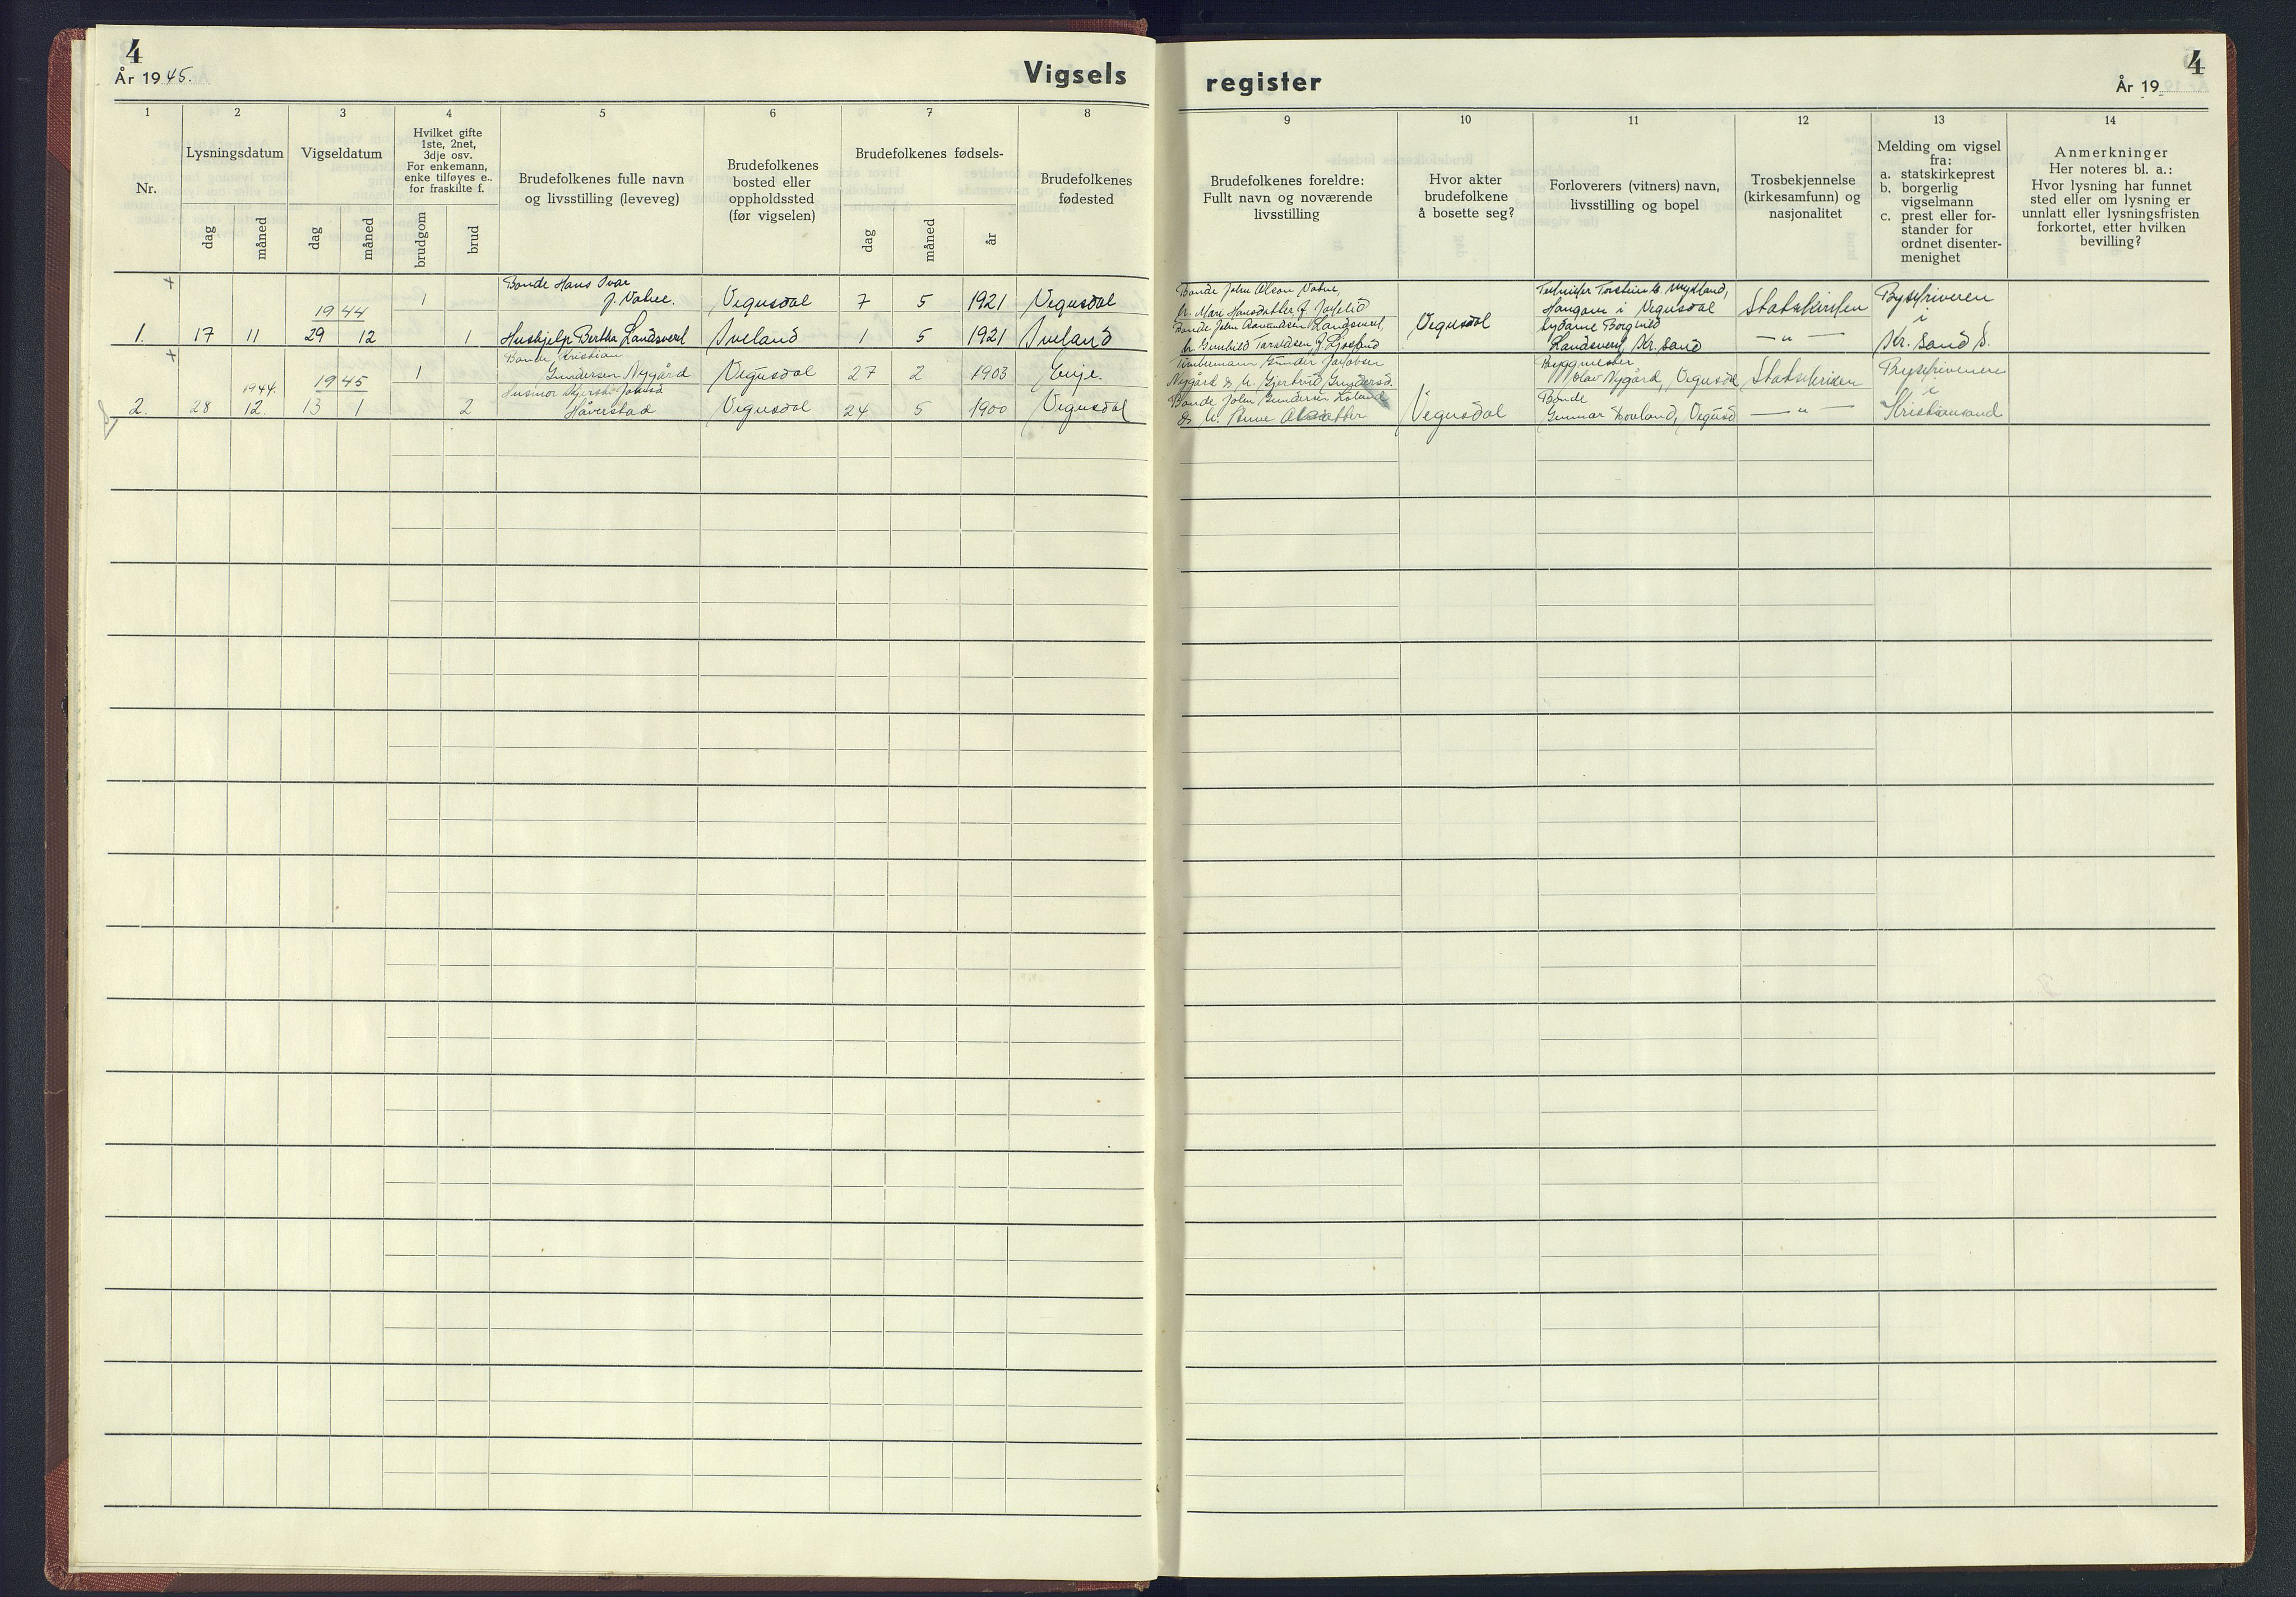 4
År 1945.
Vigsels
register
4
År 19
1
2
3
4
5
6
7
8
9
10
11
12
13
14
Nr.
Lysningsdatum
dag
måned
Vigseldatum
dag
måned
Hvilket gifte
1ste, 2net,
3dje osv.
For enkemann,
enke tilføyes e..
for fraskilte f.
brudgom
brud
Brudefolkenes fulle navn
og livsstilling (leveveg)
Brudefolkenes
bosted eller
oppholdssted
(før vigselen)
Brudefolkenes fødsels-
dag
måned
år
Brudefolkenes
fødested
Brudefolkenes foreldre:
Fullt navn og noværende
livsstilling
Hvor akter
brudefolkene
å bosette seg?
Forloverers (vitners) navn,
livsstilling og bopel
Trosbekjennelse
(kirkesamfunn) og
nasjonalitet
Melding om vigsel
fra:
a. statskirkeprest
b. borgerlig
vigselmann
c. prest eller for-
stander for
ordnet disenter-
menighet
Anmerkninger
Her noteres bl. a.:
Hvor lysning har funnet
sted eller om lysning er
unnlatt eller lysningsfristen
forkortet, etter hvilken
bevilling?
+
1. 17 11
1944
29 12
1
1
Bonde Hans Ivar
J. Vatne.
Hushjelp Bertha Landsverk
Vegusdal
Iveland
7 5 1921
1 5 1921
Vegusdal
Iveland
Bonde John Olson Vatne,
Mari Hansdatter f.
Bonde John Aanundsen Landsverk,
Gunhild Taraldsen f.
Vegusdal
Torstein Mykland,
Haugane i Vegusdal
Sydame Borghild
Landsverk, Kr. Sand
Statskirken
— " —
Byskriveren
i
Kr. Sand S.
+
2. 28
1944.
12.
1945
13 1
1
2
Bonde Kristian
Gundersen Nygård
Husmor
Håverstad
Vegusdal
Vegusdal
27 2 1903
24 5 1900
Evje.
Vegusdal
Tømmermann Gunder Jakobsen
Nygård & h. Gjertrud Gundersd.
Bonde John Gundersen
& h. Anne
Vegusdal
Byggmester
Olav Nygård, Vegusdal
Bonde
Gunnar Hovland, Vegusd
Statskirken
— " —
Byskriveren
i
Kristiansand